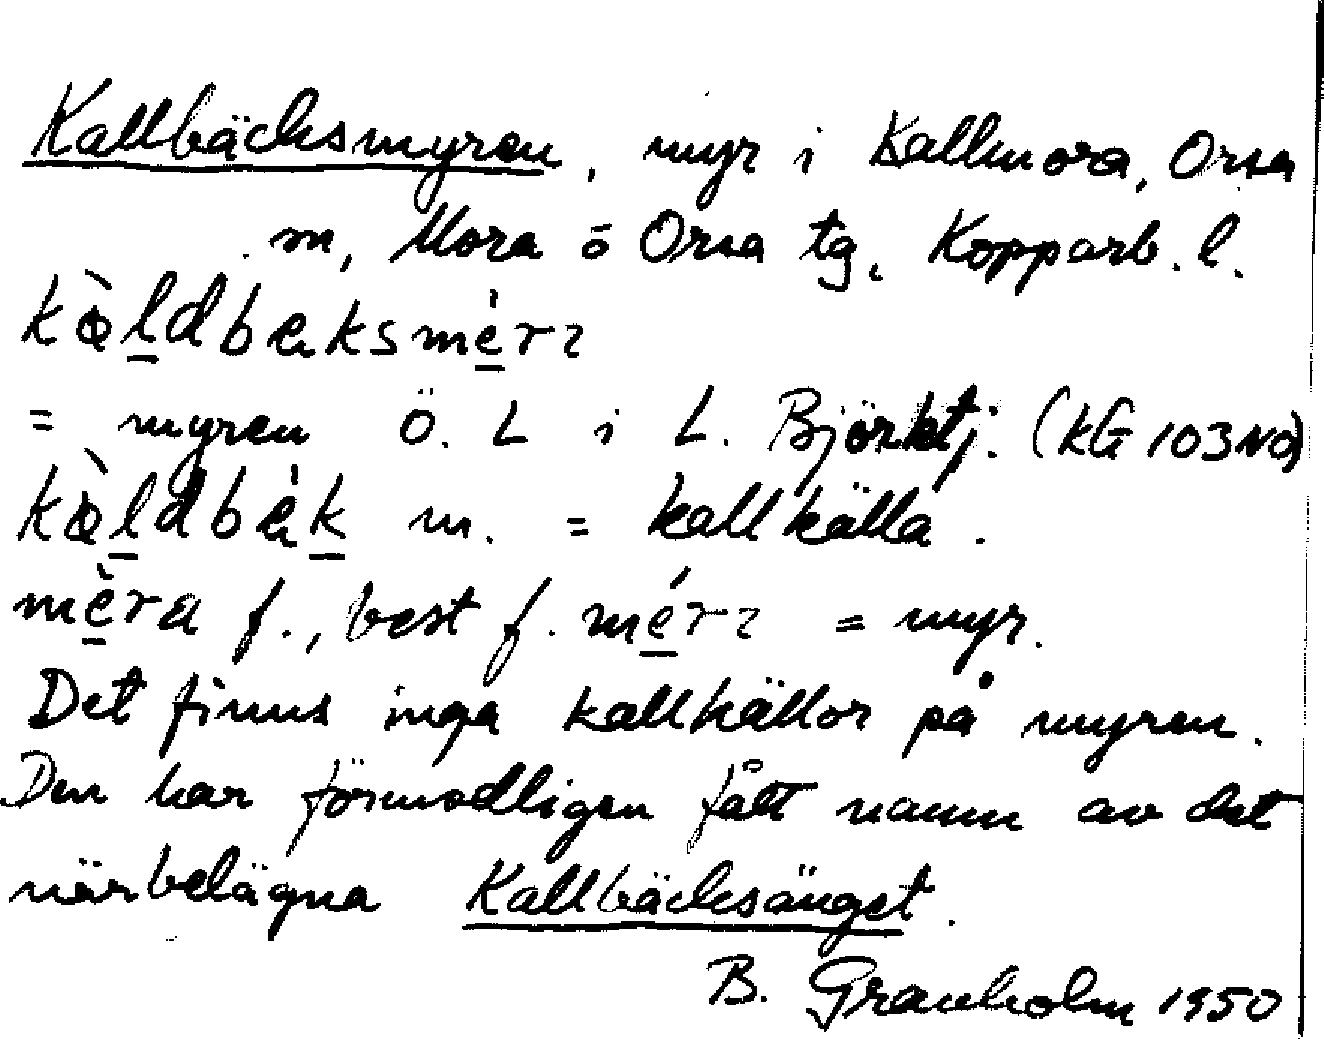 Kallbäcksmyren, myr i Kallmora, Orsa
m, Mora o Orsa tg, Kopparb. l.
kàldbæksmérı
= myren Ö. L i L. Björktj. (KG 103 NO)
kàldbæ̀k m. = kallkälla.
mèra f., best f. mérı = myr.
Det finns inga kallkällor på myren.
Den har förmodligen fått namn av det
närbelägna Kallbäcksänget.
B. Granholm 1950